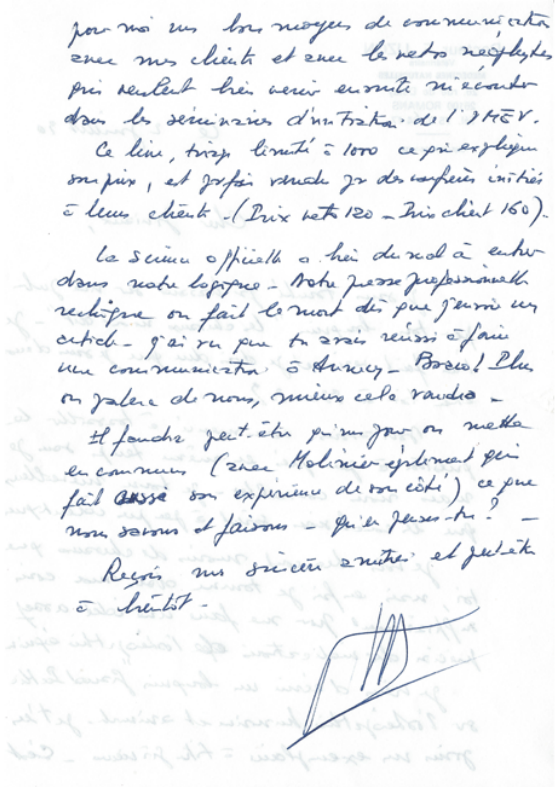 pour moi un bon moyen de communication
avec mes clients et avec les vétos néophytes
qui veulent bien venir ensuite m'écouter
dans les séminaires d'initiation de l'IMEV.
Ce livre, tirage limité à 1000 ce qui explique
son prix, est parfois vendu par des confrères initiés
à leurs clients - (Prix veto 120 - Prix client 160).
La science officielle a bien du mal à entrer
dans notre logique - Notre presse professionnelle
rechigne ou fait le mort dès que j'envoie un
article - j'ai vu que tu avais réussi à faire
une communication à Annecy - Bravo! Plus
on parlera de nous, mieux cela vaudra -
Il faudra peut-être qu'un jour on mette
en commun (avec Molinier également qui
fait son expérience de son côté) ce que
nous savons et faisons - qu'en penses-tu? -
Reçois mes sincères amitiés et peut-être
à bientôt -